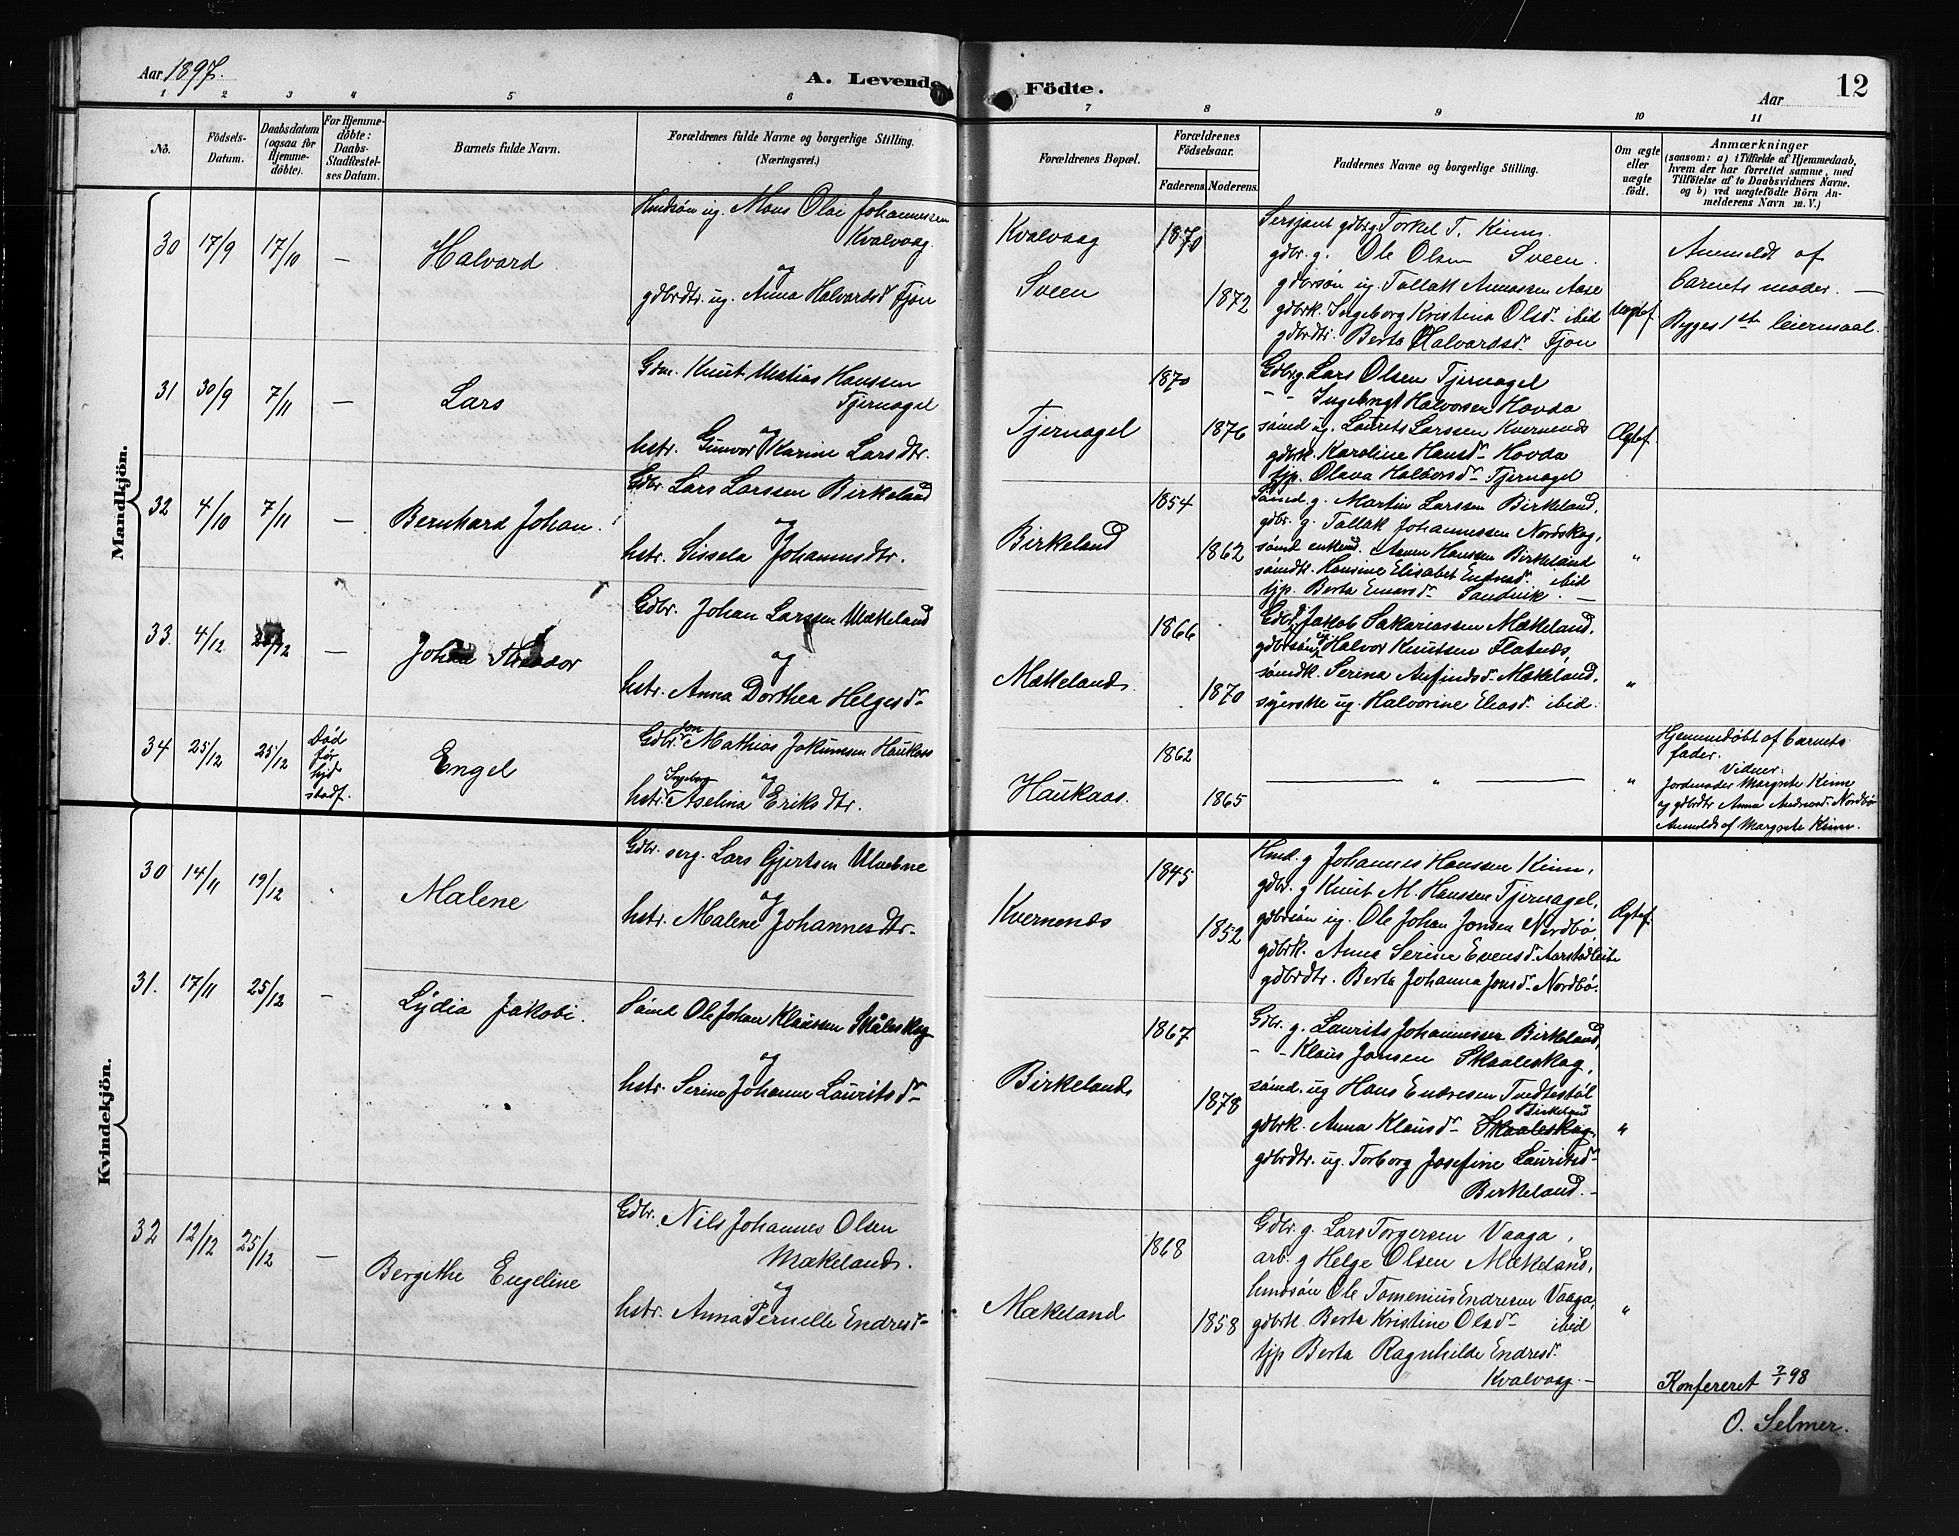 Aar 1897.
A. Levende Födte.
12
Aar
1 2 3 4 5 6 7 8 9 10 11
No.
Födsels-
Datum.
Daabsdatum
(ogsaa for
Hjemme-
döbte).
For Hjemme-
döbte:
Daabs-
Stadfæstel-
ses Datum.
Barnets fulde Navn.
Forældrenes fulde Navne og borgerlige Stilling.
(Næringsvei.)
Forældrenes Bopæl.
Forældrenes
Födselsaar.
Faderens. Moderens.
Faddernes Navne og borgerlige Stilling.
Om ægte
eller
uægte
födt.
Anmærkninger
(saasom: a) i Tilfælde af Hjemmedaab,
hvem der har forrettet samme, med
Tilföielse af to Daabsvidners Navne,
og b) ved uægtefödte Börn An-
melderens Navn m. V.)
Mandkjön.
30 17/9 17/10 — Halvard
Kvalvaag
og
gdbrdtr. ug. Anna Halvardsd. Fjon
Kvalvaag
Sveen
1870
1872
Sersjant gdbrg Torkel T. Kinn.
gdbr. g. Ole Olsen Sveen.
gdbrsøn ug. Tallak Aanassen Aase
gdbrk. Ingeborg Kristina Olsd. ibid
gdbrdtr. Berta Halvardsd. Fjon
Uægtef.
Anmeldt af
barnets moder. —
Begges 1st leiermaal.
31 30/9 7/11 — Lars
Gdm. Knut Matias Hanssen
Tjernagel
og
hstr. Gunvor Karine Larsdtr.
Tjernagel
1870
1876
Gdbr.g. Lars Olsen Tjernagel
- - Ingebrigt Halvorsen Hovda
sømd ug. Laurits Larssen Kvernenes
gdbrk. Karoline Hansd. Hovda
tjp. Olava Halvorsd. Tjernagel
Ægtef.
32 4/10 7/11 — Bernhard Johan.
Gdbr. Lars Larssen Birkeland
og
hstr. Sissela Johannesdtr.
Birkeland
1854
1862
Sømd. g. Martin Larssen Birkeland,
gdbr. g. Tallak Johannessen Nordskog,
sømd enkem. Aamn Hanssen Birkeland
sømdtr. Hansine Elisabet Endresd. ibid
tjp. Berta Einarsd. Sandvik. —
"
33. 4/12 /12 — Johan
Gdbr. Johan Larssen Mækeland
og
hstr. Anna Dorthea Helgesd.
Mækeland.
1866
1870
Gdbr. Jakob Sakariassen Mækeland,
gdbrsøn ug. Halvor Knutsen Flatnes,
sømdk. Serina Arfindsd. Mækeland,
syerske ug. Halvorine Eliasd. ibid.
"
34 25/12 25/12 Død
før
hjd
stadf.
Engel
Gdbr.søn Mathias Jokumsen Haukaas
og
hstr. Ingeborg Aselina Eriksdtr.
Haukaas.
1862
1865
— " —
"
Hjemmedøbt af barnets
fader.
Vidner:
Jordmoder Margrete Kinn
og gdbrdtr Anna Andreasd. Nordbø
Anmeldt af Margrete Kinn.
Kvindekjön.
30 14/11 19/12 Malene
Gdbr. serg. Lars Gjertsen
og
hstr. Malene Johannesdtr.
Kvernenes
1845
1852
Hmd. g Johannes Hanssen Kinn,
gdbr. g Knut M. Hanssen Tjernagel,
gdbrsøn ug. Ole Johan Jonsen Nordbø,
gdbrk. Anna Serine Evensd. Aarstadleite
gdbrdtr. Berta Johanna Jonsd. Nordbø.
Ægtef.
31. 17/11 25/12 — Lydia Jakobi.
Sømd Ole Johan Klaussen Skåleskog
og
hstr. Serine Johanne Lauritsd.
Birkeland
1867
1878
Gdbr. g. Laurits Johannessen Birkeland,
- - Klaus Jansen Skaaleskog,
sømd. ug Hans Endresen Tvedtestøl
Birkeland
gdbrk. Anna Klausd. Skaaleskog
gdbrdtr. ug. Torborg Josefine Lauritsd.
Birkeland. —
"
32 12/12 25/12 — Bergithe Engeline
Gdbr. Nils Johannes Olsen
Mækeland.
og
hstr. Anna Pernille Endresd.
Mækeland
1868
1858
Gdbr. g. Lars Torgersen Vaaga,
arb. g Helge Olsen Mækeland,
hmdsøn Ole Tomenius Endresen Vaaga,
gdbrk. Berta Kristine Olsd. ibid
tjp Berta Ragnhilde Endresd.
Kvalvaag. —
"
Konfereret 7/1 98
O. Selmer.